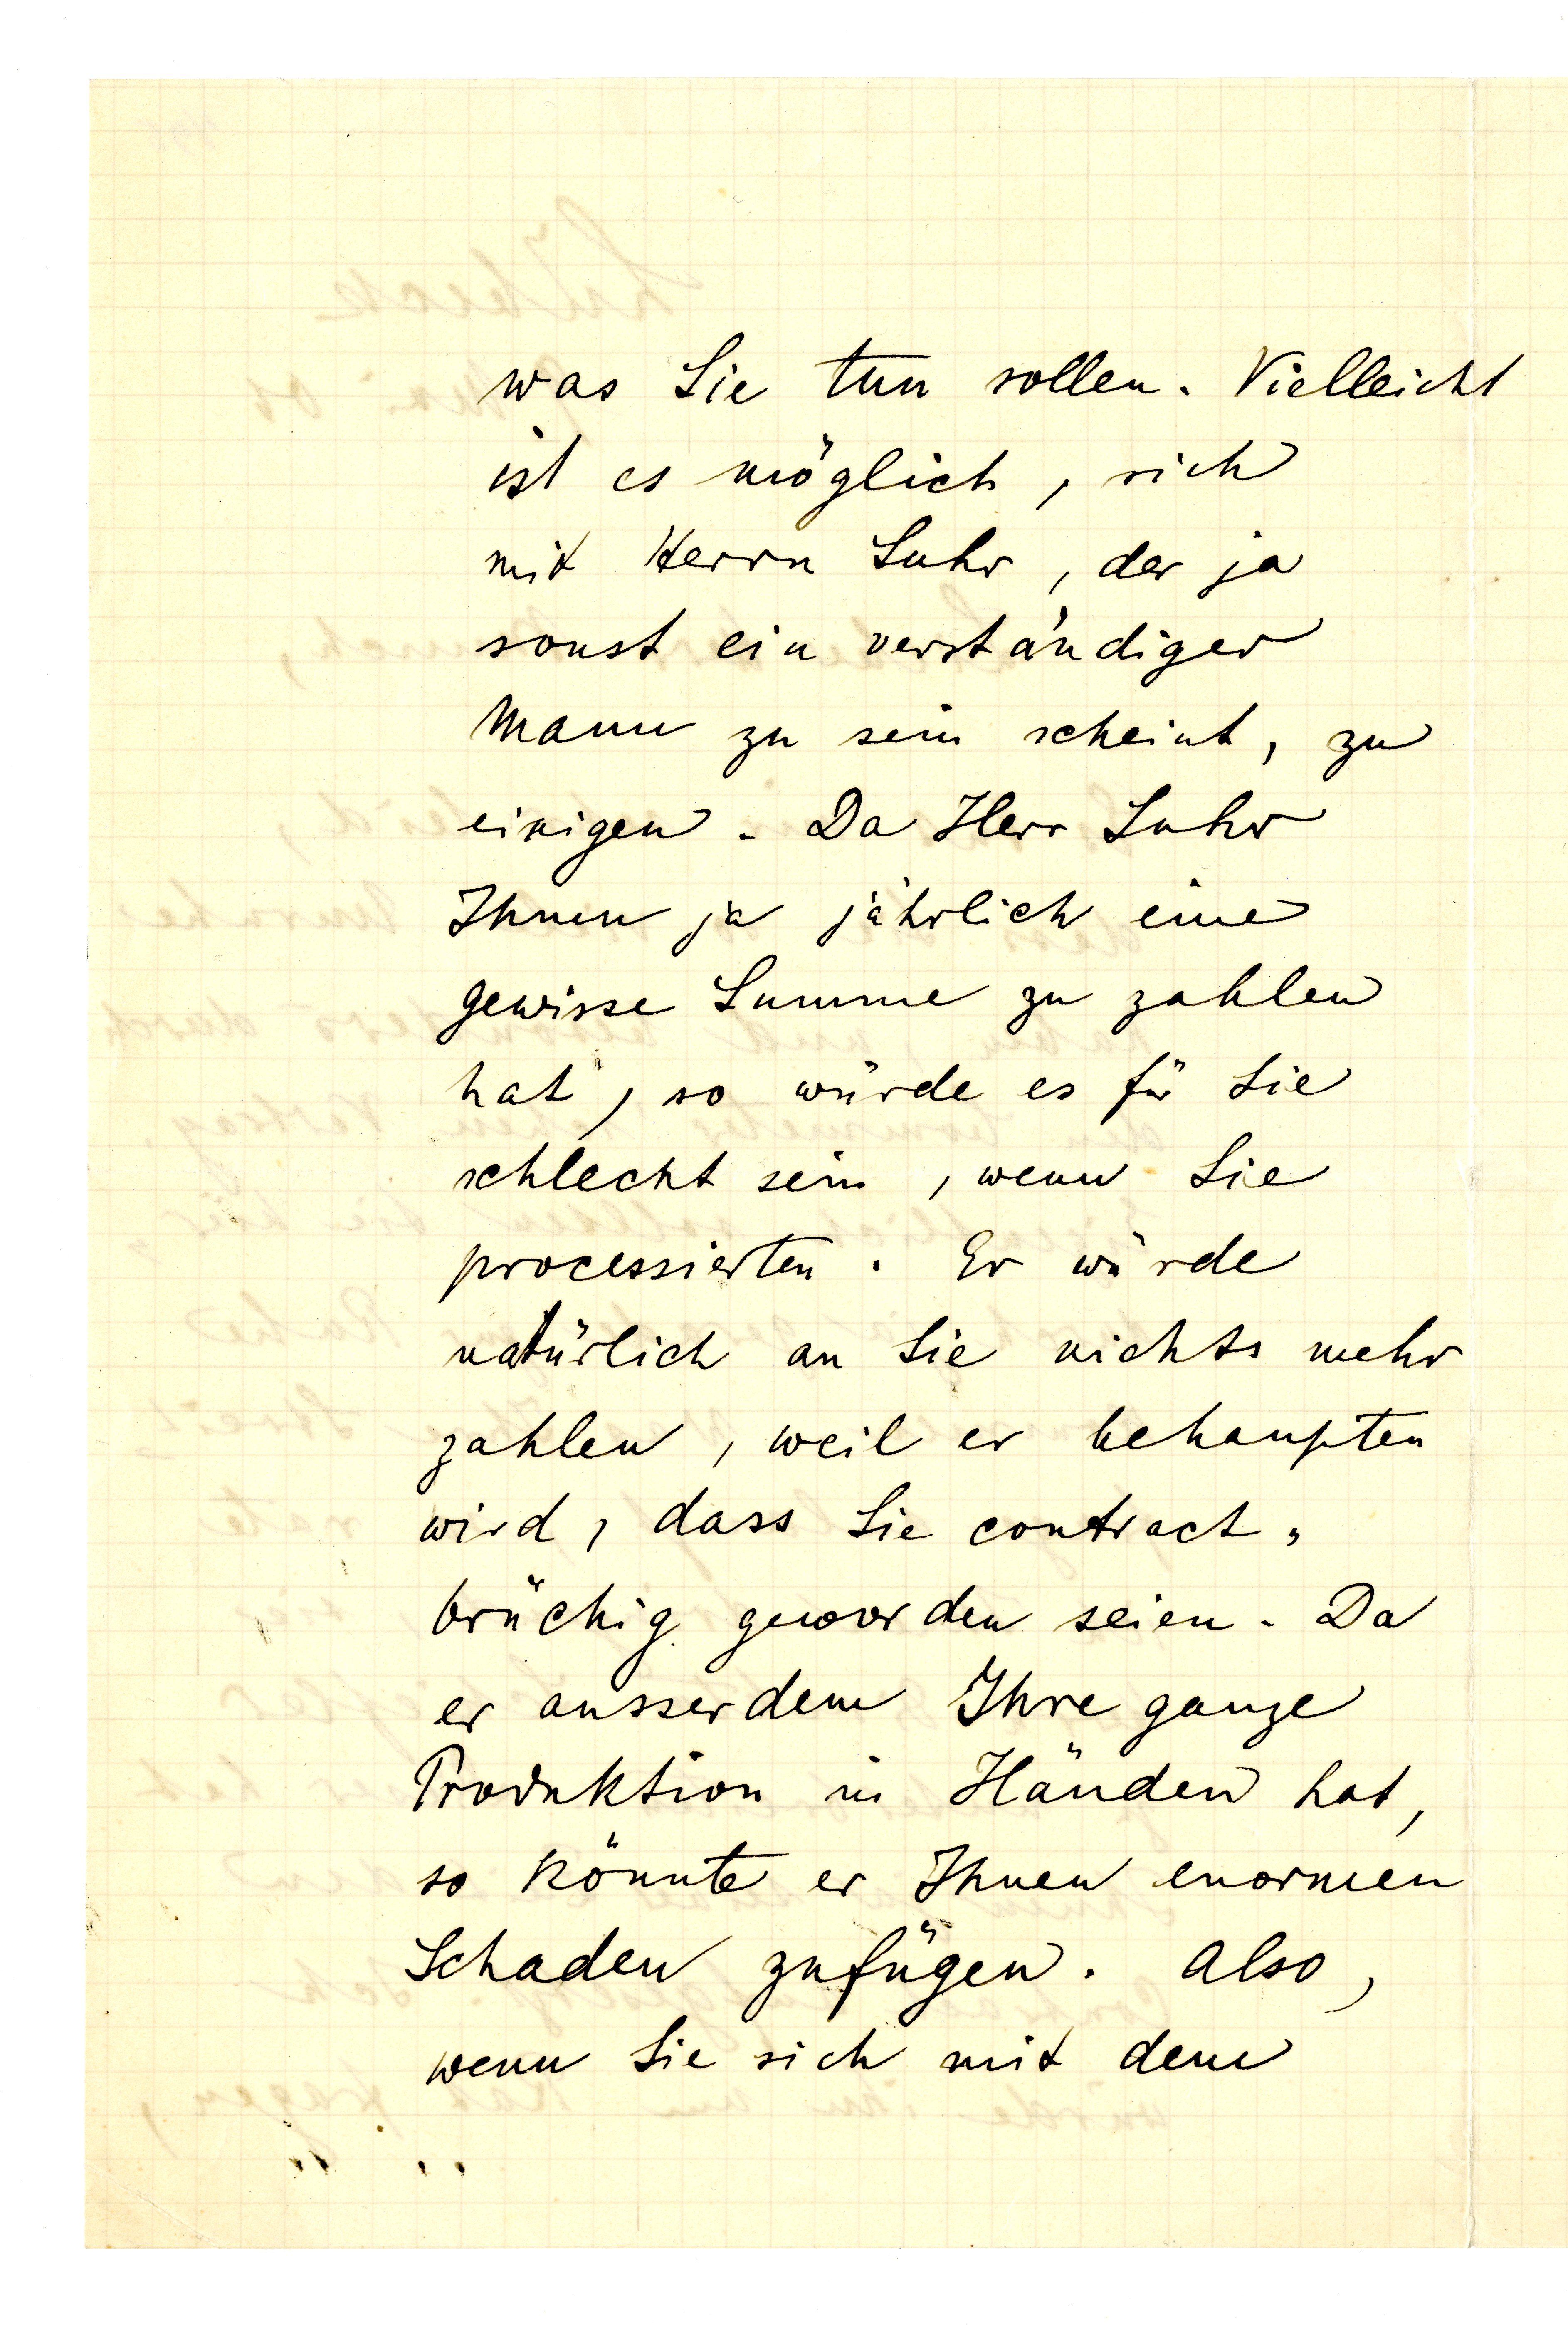 was Sie tun sollen. Vielleicht
ist es möglich, sich
mit Herrn Suhr, der ja
sonst ein verständiger
Mann zu sein scheint, zu
einigen. Da Herr Suhr
Ihnen ja jährlich eine
gewisse Summe zu zahlen
hat, so würde es für Sie
schlecht sein, wenn Sie
processierten. Er würde
natürlich an Sie nichts mehr
zahlen, weil er behaupten
wird, dass Sie contract„
brüchig geworden seien. Da
er ausserdem Ihre ganze
Produktion in Händen hat,
so könnte er Ihnen enormen
Schaden zufügen. Also,
wenn Sie sich mit dem